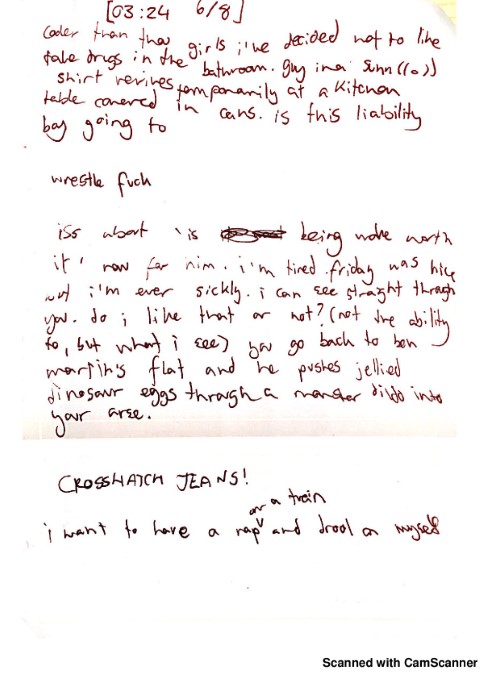 [03:24 6/8]
cooler than thou girls i've decided not to like
take drugs in the bathroom. guy in a Sunn((o))
shirt revives temporarily at a kitchen
table covered in cans. is this liability
boy going to
wrestle fuck
iss about 'is being woke worth
it' row for him. i'm tired. friday was nice
but i'm ever sickly. i can see straight through
you. do i like that or not? (not the ability
to, but what i see) you go back to ben
martin's flat and he pushes jellied
dinosaur eggs through a monster dildo into
your arse.
CROSSHATCH JEANS!
or a train
i want to have a nap and drool on myself
Scanned with CamScanner